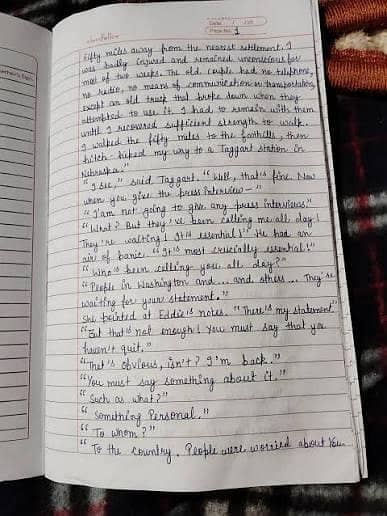 Date / /20
Page No. 1
Fifty miles away from the nearest settlement. I
was badly injured and remained unconscious for
most of two weeks. The old couple had no telephone,
no radio, no means of communication or transportation,
except an old truck that broke down when they
attempted to use it. I had to remain with them
until I recovered sufficient strength to walk.
I walked the fifty miles to the foothills, then
hitch hiked my way to a Taggart station in
Nebraska."
"I see," said Taggart. "Well, that's fine. Now
when you give the press interview—"
"I am not going to give any press interviews."
"What? But they've been calling me all day!
They're waiting! It's essential!" He had an
air of panic. "It's most crucially essential!"
"Who's been calling you all day?"
"People in Washington and... and others... They're
waiting for your statement."
She pointed at Eddie's notes. "There's my statement"
"But that's not enough! You must say that you
haven't quit."
"That's obvious, isn't? I'm back."
"You must say something about it."
"Such as what?"
"Something Personal."
"To whom?"
"To the country. People were worried about You.